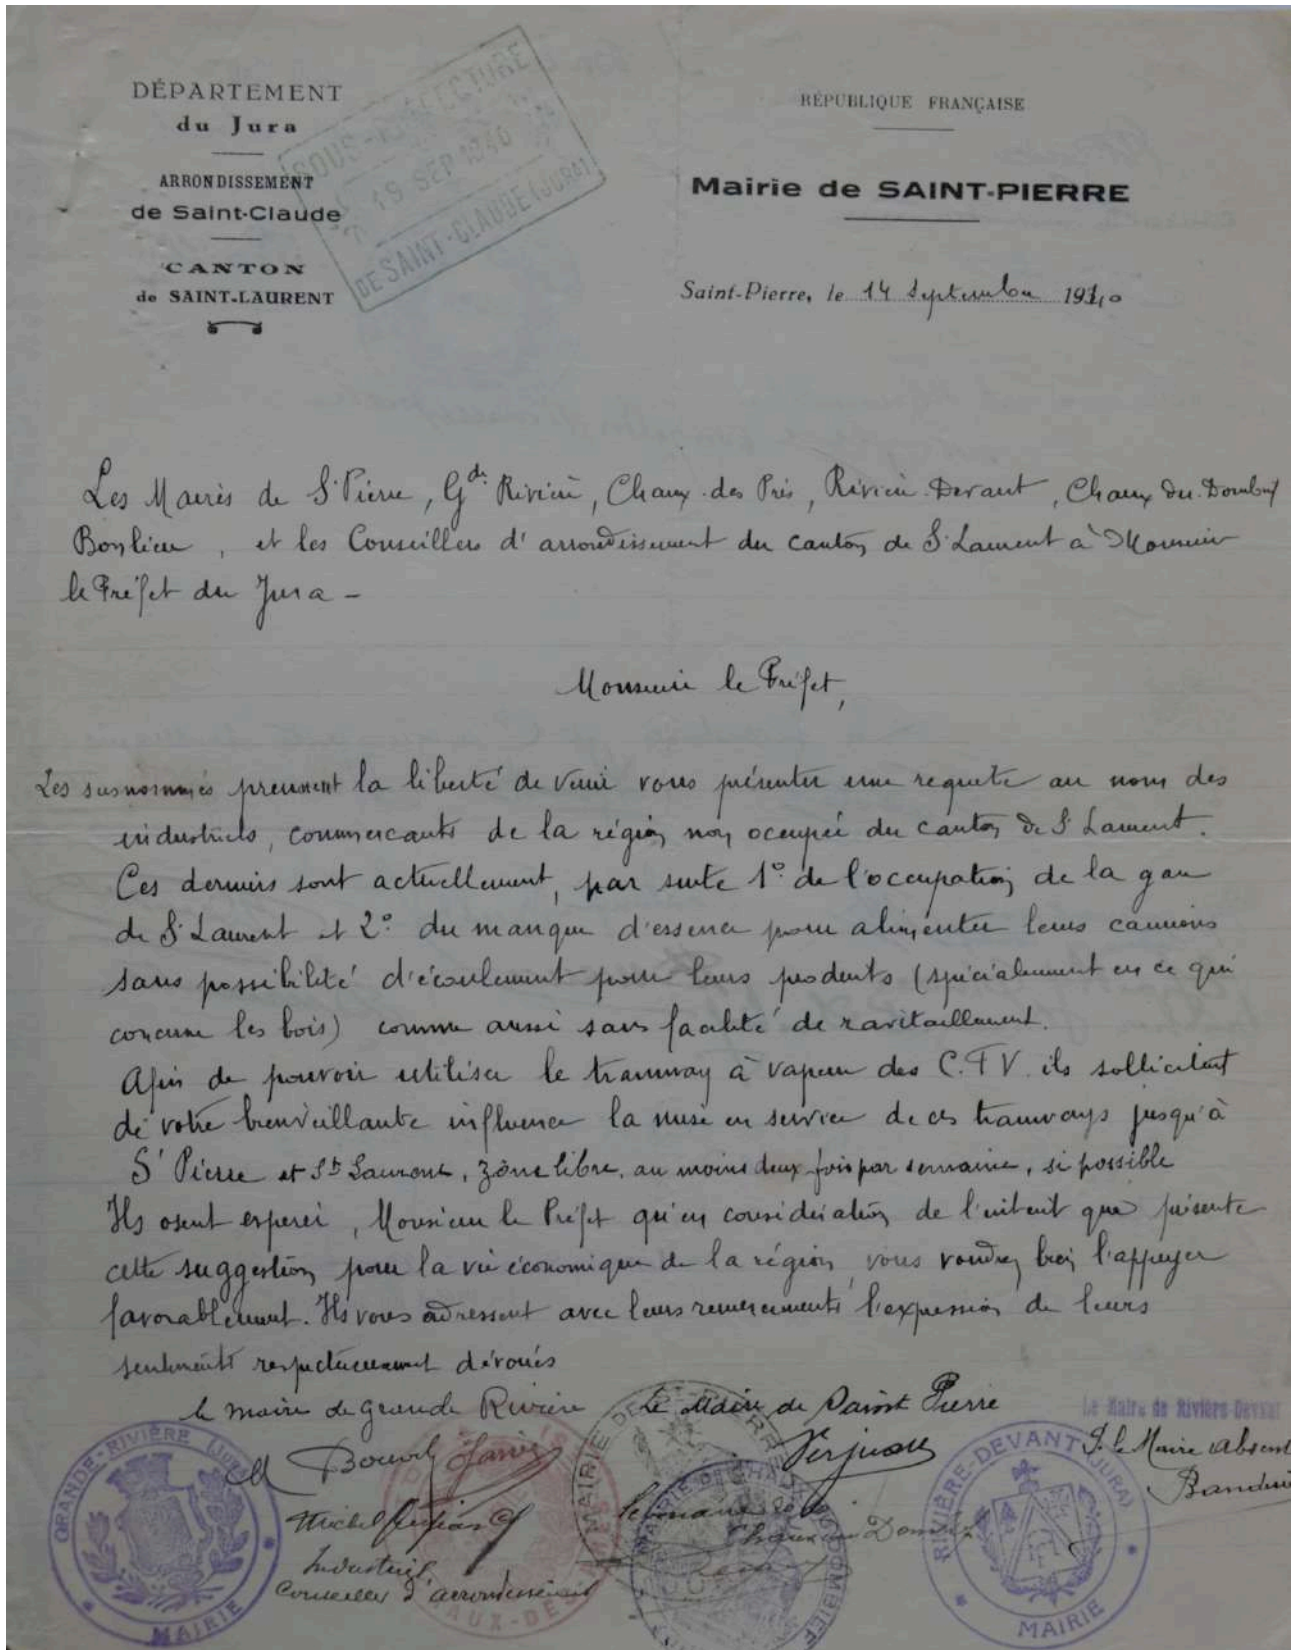 DÉPARTEMENT
du Jura
ARRONDISSEMENT
de Saint-Claude
CANTON
de SAINT-LAURENT
SOUS-PRÉFECTURE
19 SEP 1940
DE SAINT-CLAUDE (JURA)
RÉPUBLIQUE FRANÇAISE
Mairie de SAINT-PIERRE
Saint-Pierre, le 14 Septembre 1940
Les Maires de St Pierre, Gde Rivière, Chaux-des-Prés, Rivière-Devant, Chaux-du-Dombief
Bonlieu, et les Conseillers d'arrondissement du canton de St Laurent à Monsieur
le Préfet du Jura -
Monsieur le Préfet,
Les susnommés prennent la liberté de venir vous présenter une requête au nom des
industriels, commerçants de la région non occupée du canton de St Laurent.
Ces derniers sont actuellement, par suite 1° de l'occupation de la gare
de St Laurent et 2° du manque d'essence pour alimenter leurs camions
sans possibilité d'écoulement pour leurs produits (spécialement en ce qui
concerne les bois) comme aussi sans facilité de ravitaillement.
Afin de pouvoir utiliser le tramway à vapeur des C.F.V. ils sollicitent
de votre bienveillante influence la mise en service de ces tramways jusqu'à
St Pierre et St Laurent, zône libre, au moins deux fois par semaine, si possible
Ils osent espérer, Monsieur le Préfet qu'en considération de l'intérêt que présente
cette suggestion pour la vie économique de la région, vous voudrez bien l'appuyer
favorablement. Ils vous adressent avec leurs remerciements l'expression de leurs
sentiments respectueusement dévoués
le maire de Grande Rivière
Le Maire de Saint Pierre
Le Maire de Rivière-Devant
P. le Maire Absent
Michel
Industriel
Conseiller d'arrondissement
le maire de la
Chaux du Dombief
GRANDE-RIVIÈRE (Jura)
MAIRIE
RIVIÈRE-DEVANT (JURA)
MAIRIE